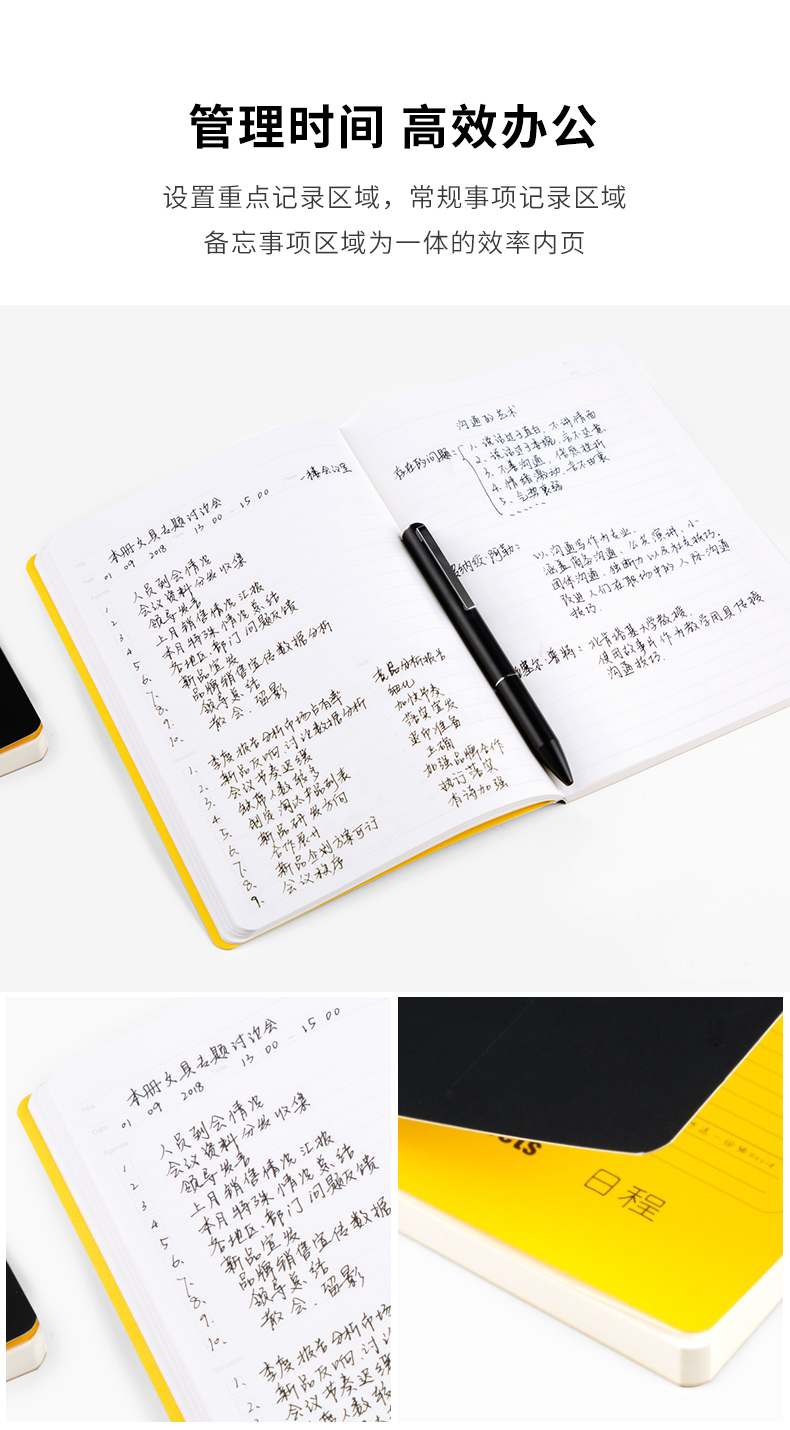 管理时间 高效办公
设置重点记录区域，常规事项记录区域
备忘事项区域为一体的效率内页
本册文具专题讨论会
01 09 2018 13 00 - 15 00 一楼会议室
1 人员到会情况
2 会议资料分发收集
3 领导发言
4 上月销售情况汇报
5 本月特殊情况总结
6. 各地区、部门问题反馈
7. 新品宣发
8. 品牌销售宣传数据分析
9. 领导总结
10. 散会、留影
1. 季度报告分析市场占有率 竞品分析报告
2. 新品反响讨论数据分析 细化
3. 会议节奏迟缓 加快节奏
4 缺席人数较多 落实宣发
5. 制定淘汰产品列表
6 新品研发方向 正确
7. 合作展开 加强品牌合作
8. 新品企划方案可订
9. 会议秩序 有待加强
沟通的艺术
存在的问题：
1. 说话过于直白，不讲情面
2. 说话过于委婉，言不达意
3. 不善沟通，信息挫折
4. 情绪激动，言不由衷
5. 气势衰弱
以沟通写作为专业，
涵盖商务沟通、公共演讲、小
团体沟通、独断力以及社交技巧，
改进人们在职场中的人际沟通
技巧.
普格：北肯塔基大学教授，
使用故事片作为教学用具传授
沟通技巧.
本册文具专题讨论会
01 09 2018 13 00 - 15 00
1 人员到会情况
2 会议资料分发收集
3 领导发言
4 上月销售情况汇报
5 本月特殊情况总结
6. 各地区、部门问题反馈
7. 新品宣发
8. 品牌销售宣传数据
9. 领导总结
10. 散会、留影
1. 季度报告分析市场
2. 新品反响讨论
会议节奏迟缓
席人数较
日程